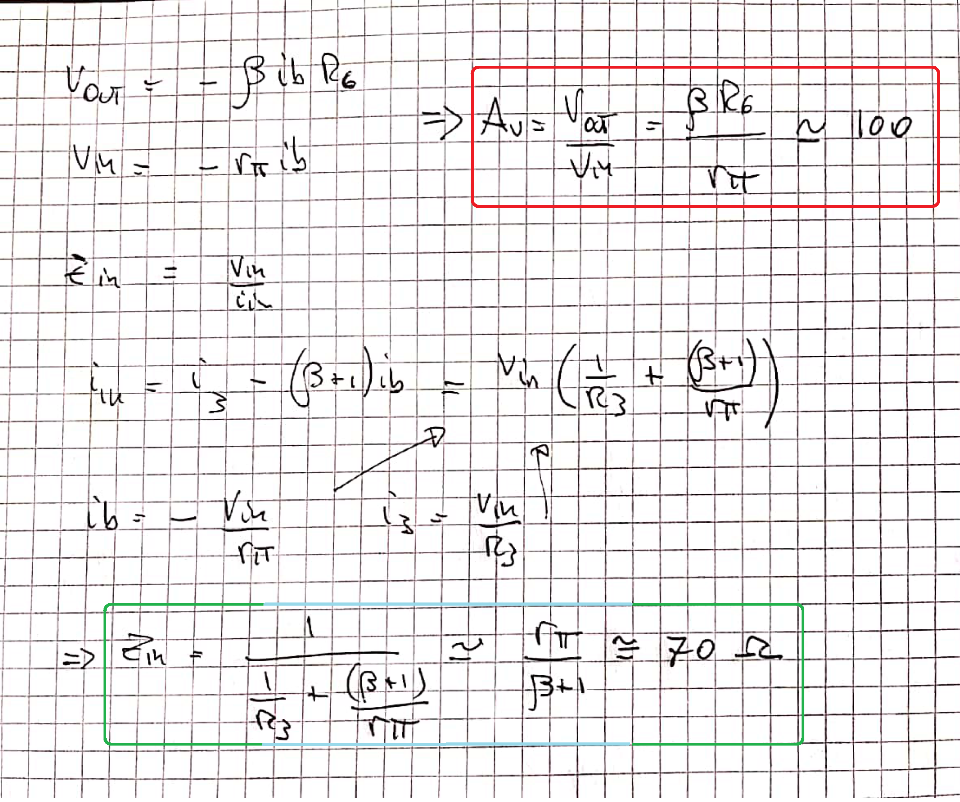 V_OUT = - β ib R6
=> Av = V_OUT / Vin = β R6 / rπ ≃ 100
Vin = - rπ ib
Zin = Vin / iin
iin = i3 - (β+1) ib = Vin ( 1/R3 + (β+1)/rπ )
ib = - Vin / rπ i3 = Vin / R3
=> Zin = 1 / ( 1/R3 + (β+1)/rπ ) ≃ rπ / β+1 ≅ 70 Ω